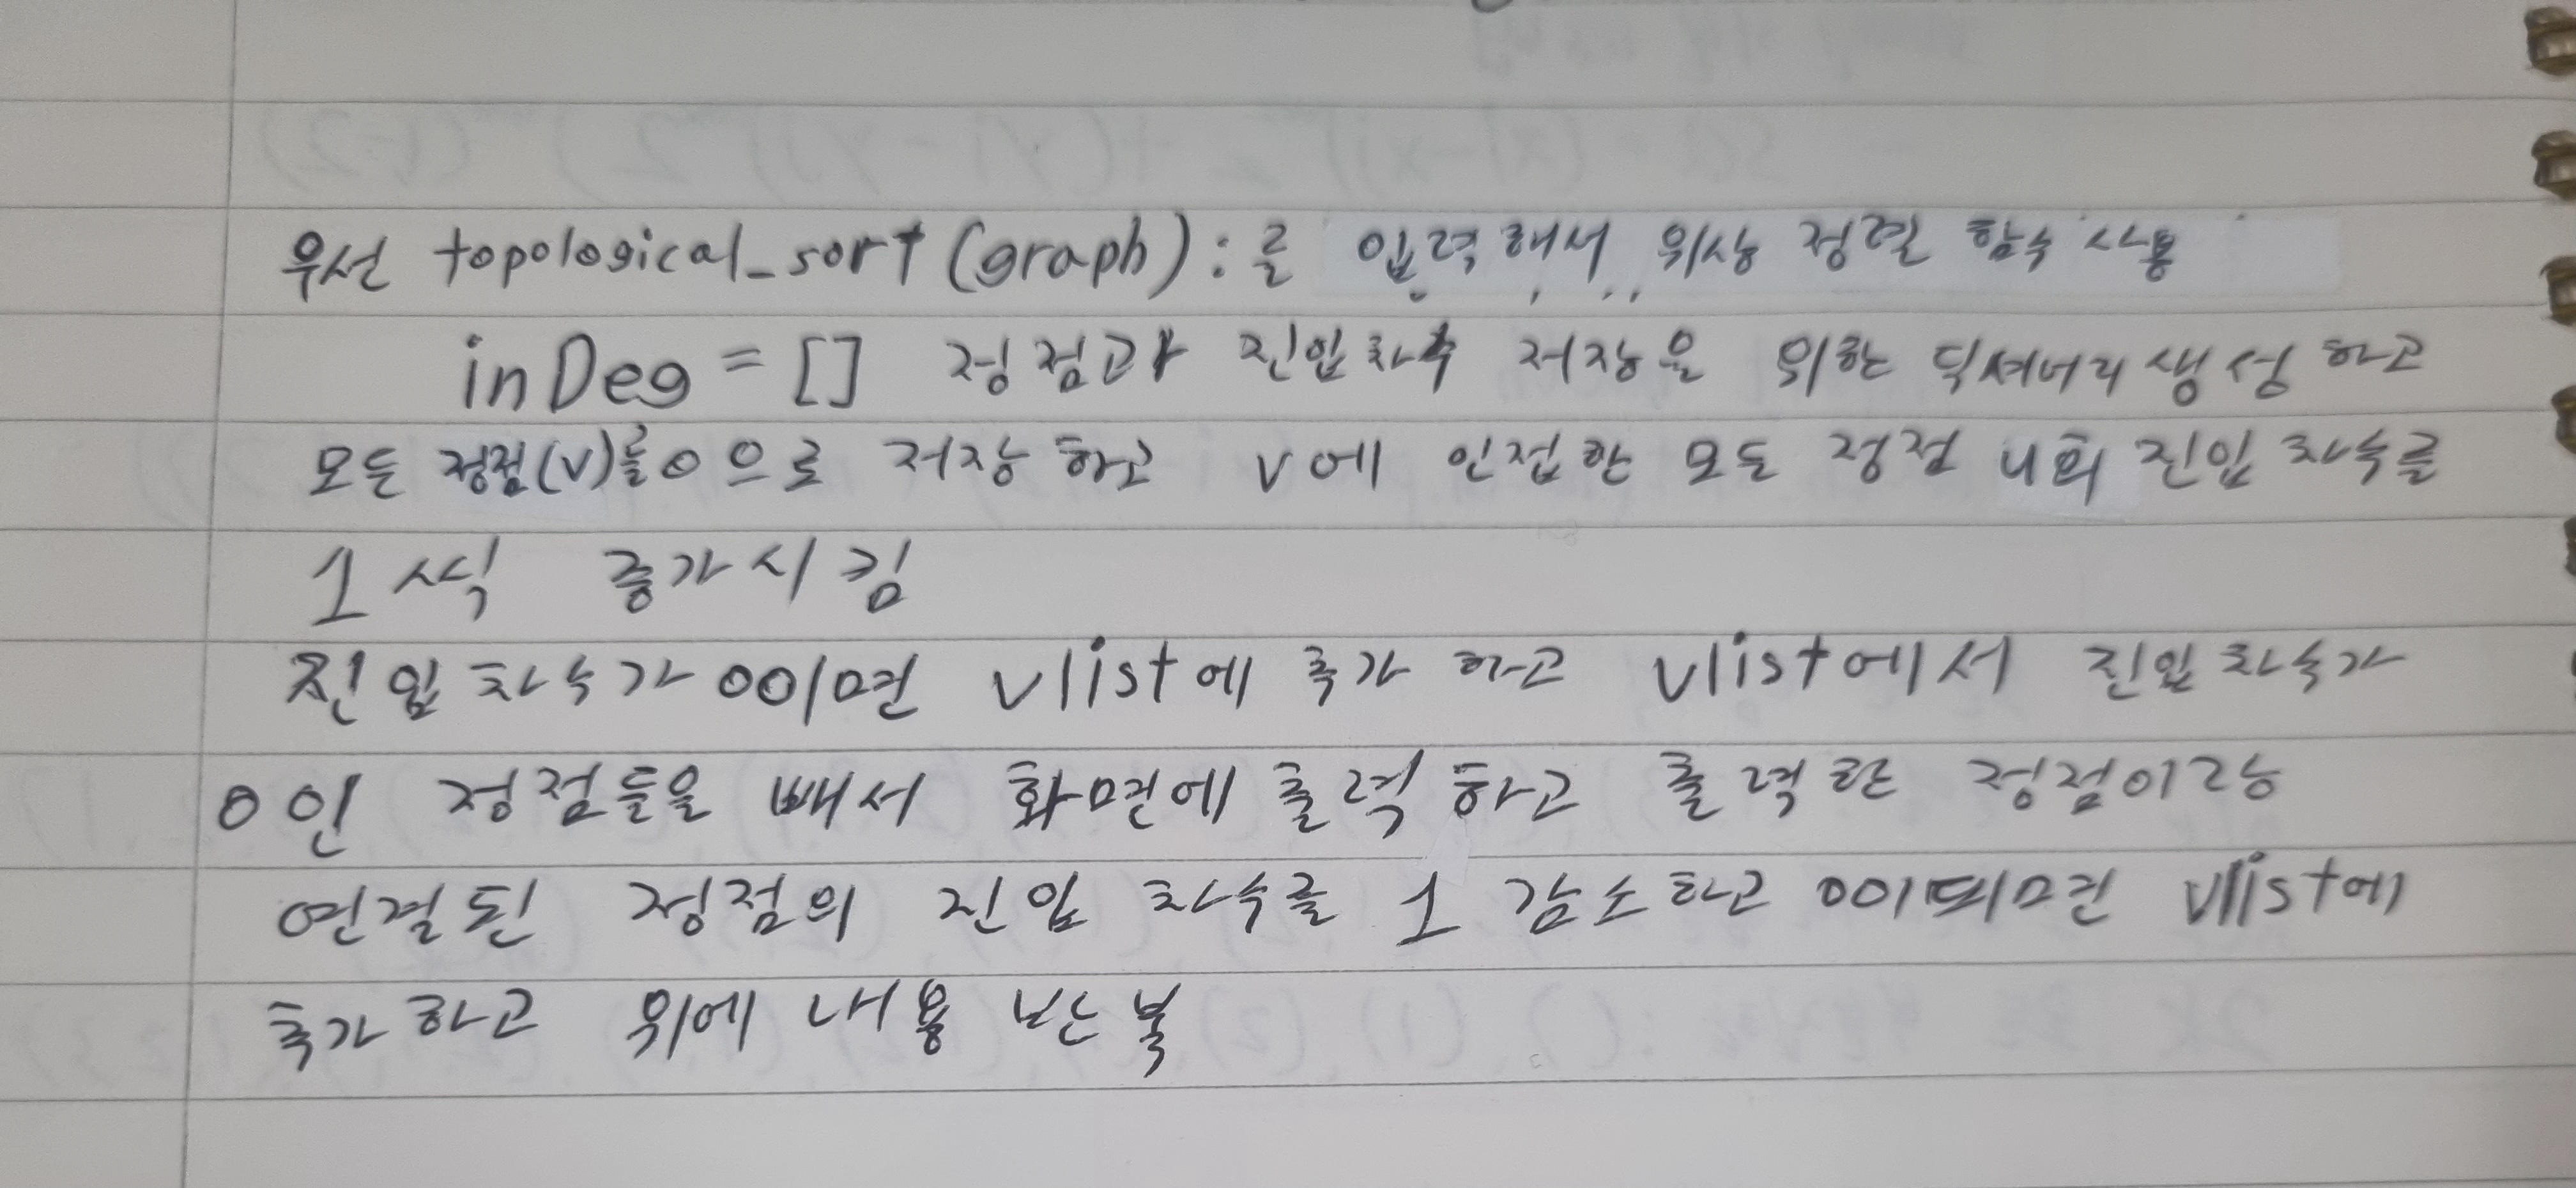 우선 topological_sort(graph):를 입력해서 위상 정렬 함수 사용
inDeg = [] 정점과 진입차수 저장을 위한 딕셔너리 생성하고
모든 정점(V)를 0으로 저장하고 V에 인접한 모든 정점 u의 진입 차수를
1씩 증가시킴
진입차수가 0이면 vlist에 추가 하고 vlist에서 진입차수가
0인 정점들을 빼서 화면에 출력하고 출력한 정점이랑
연결된 정점의 진입 차수를 1 감소하고 0이되면 vlist에
추가하고 위에 내용 반복